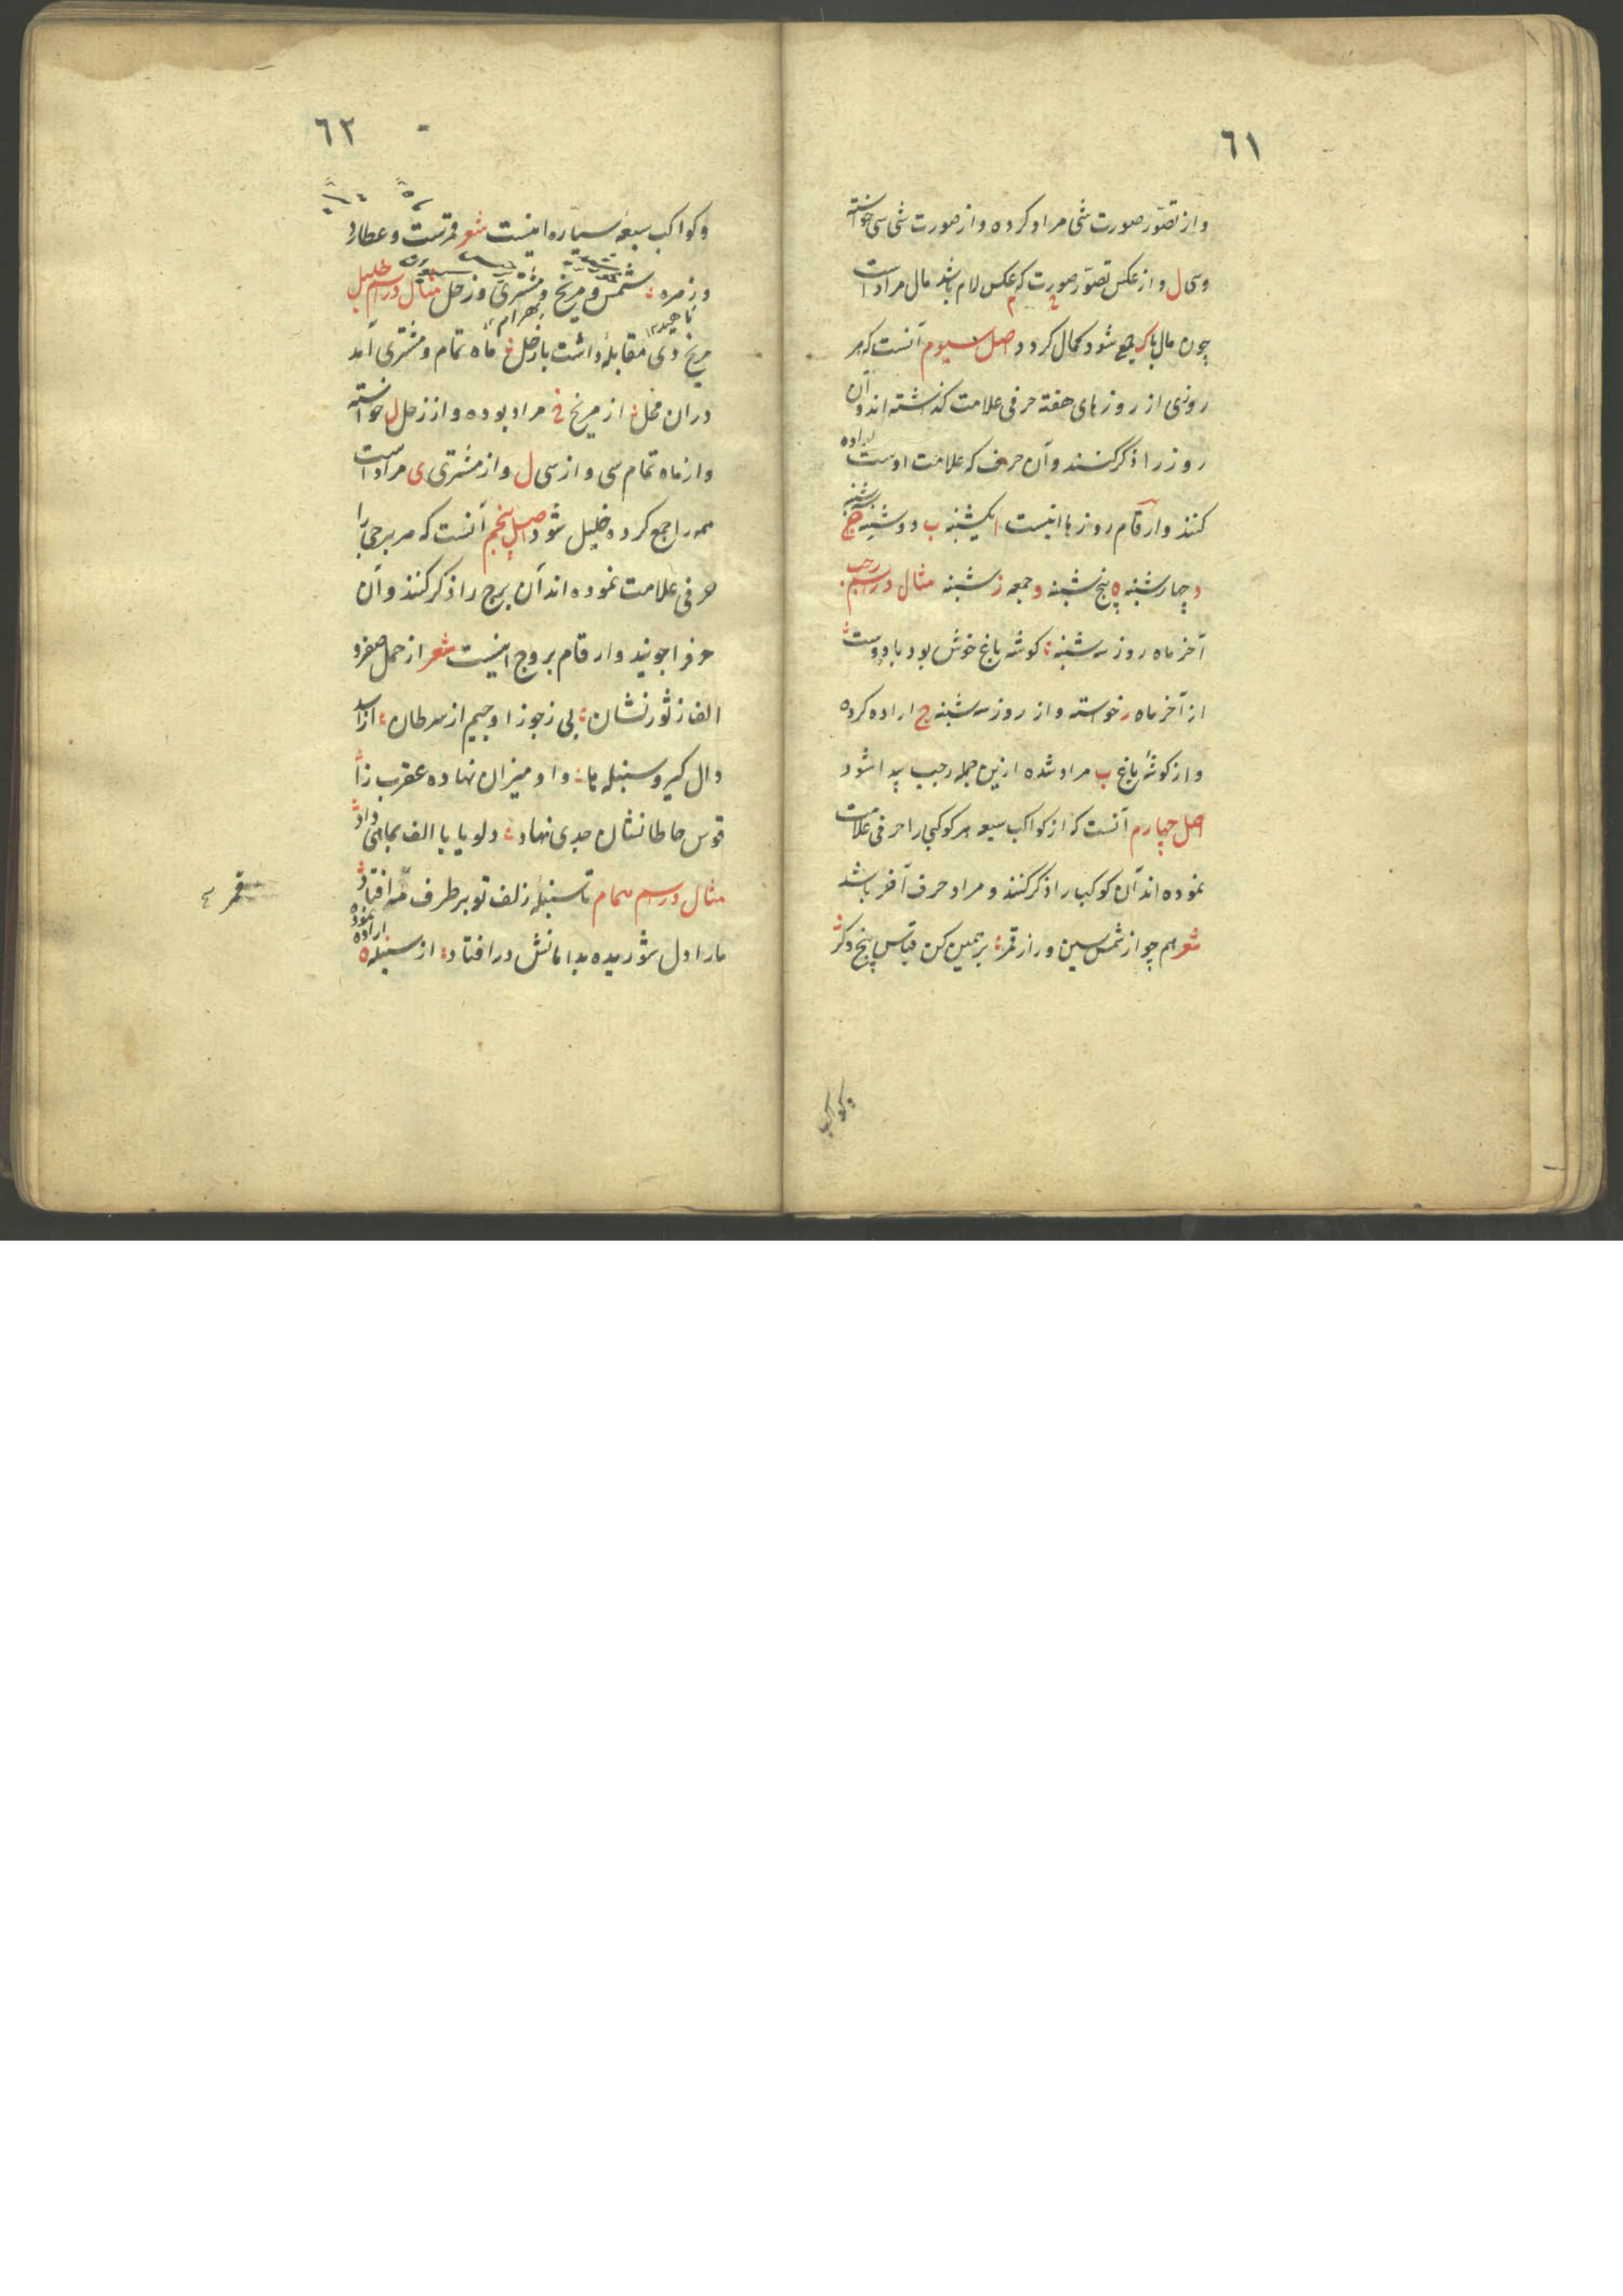 ٦١
واز تصوّر صورت شی مراد کرده واز صورت شی سی خواسته
وسی ل واز عکس تصوّر صورت که عکس لام باشد مال مراد است
چون مال باک جمع شود کمال کردد اصل سیوم آنست که هر
روزی از روزهای هفته حرفی علامت کذاشته اند وآن
روز را ذکر کنند وآن حرف که علامت اوست اراده
کنند وارقام روزها اینست ا یکشنبه ب دوشنبه ج سه شنبه
د چهارشنبه ه پنج شنبه و جمعه ز شنبه مثال در اسم رجب
آخر ماه روز سه شنبه کوشه باغ خوش بود با دوست
از آخر ماه ر خواسته واز روز سه شنبه ج اراده کرده
واز کوشه باغ ب مراد شده ازین جمله رجب پیدا شود
اصل چهارم آنست که از کواکب سبعه هر کوکبی را حرفی علامت
نموده اند آن کوکب را ذکر کنند و مراد حرف آخر باشد
شعر همچو از شمس سین و را از قمر برهمین کن قیاس پنج دکر
وکواکب
٦٢
وکواکب سبعهٔ سیاره اینست شعر قمرست و عطارد
وزهره شمس و مریخ و مشتری و زحل مثال در اسم خلیل
ناهید بهرام
مریخ دی مقابله داشت با زحل ماه تمام و مشتری آمد
دران محل از مریخ خ مراد بوده واز زحل ل خواسته
واز ماه تمام سی واز سی ل واز مشتری ی مراد است
همه را جمع کرده خلیل شود اصل پنجم آنست که هر برجی را
حرفی علامت نموده اند آن برج را ذکر کنند وآن
حرف را جویند وارقام بروج اینست شعر از حمل صفر و
الف ز ثور نشان بی ز جوزا و جیم از سرطان از اسد
دال کیر و سنبله ها واو میزان نهاده عقرب زا
قوس حا طا نشان جدی نهاد دلو یا یا الف بماهی داد
مثال در اسم همام تا سنبله زلف تو بر طرف مه افتاد
ما را دل شوریده بدامانش در افتاد از سنبله ه اراده نموده
قمر